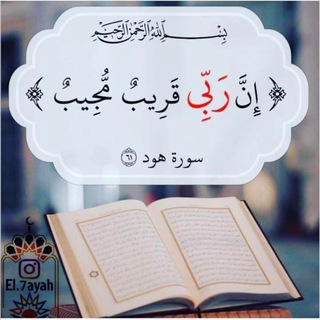 بِسْمِ اللَّهِ الرَّحْمَٰنِ الرَّحِيمِ
﴿ إِنَّ رَبِّي قَرِيبٌ مُّجِيبٌ ﴾
سورة هود ٦١
El.7ayah